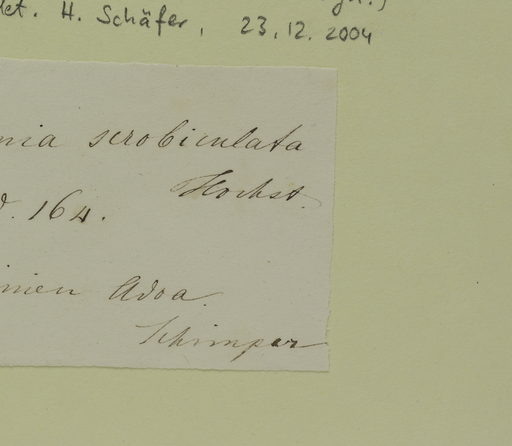 det. H. Schäfer, 23.12.2004
nia scrobiculata
Hochst.
164.
inien Adoa.
Schimper